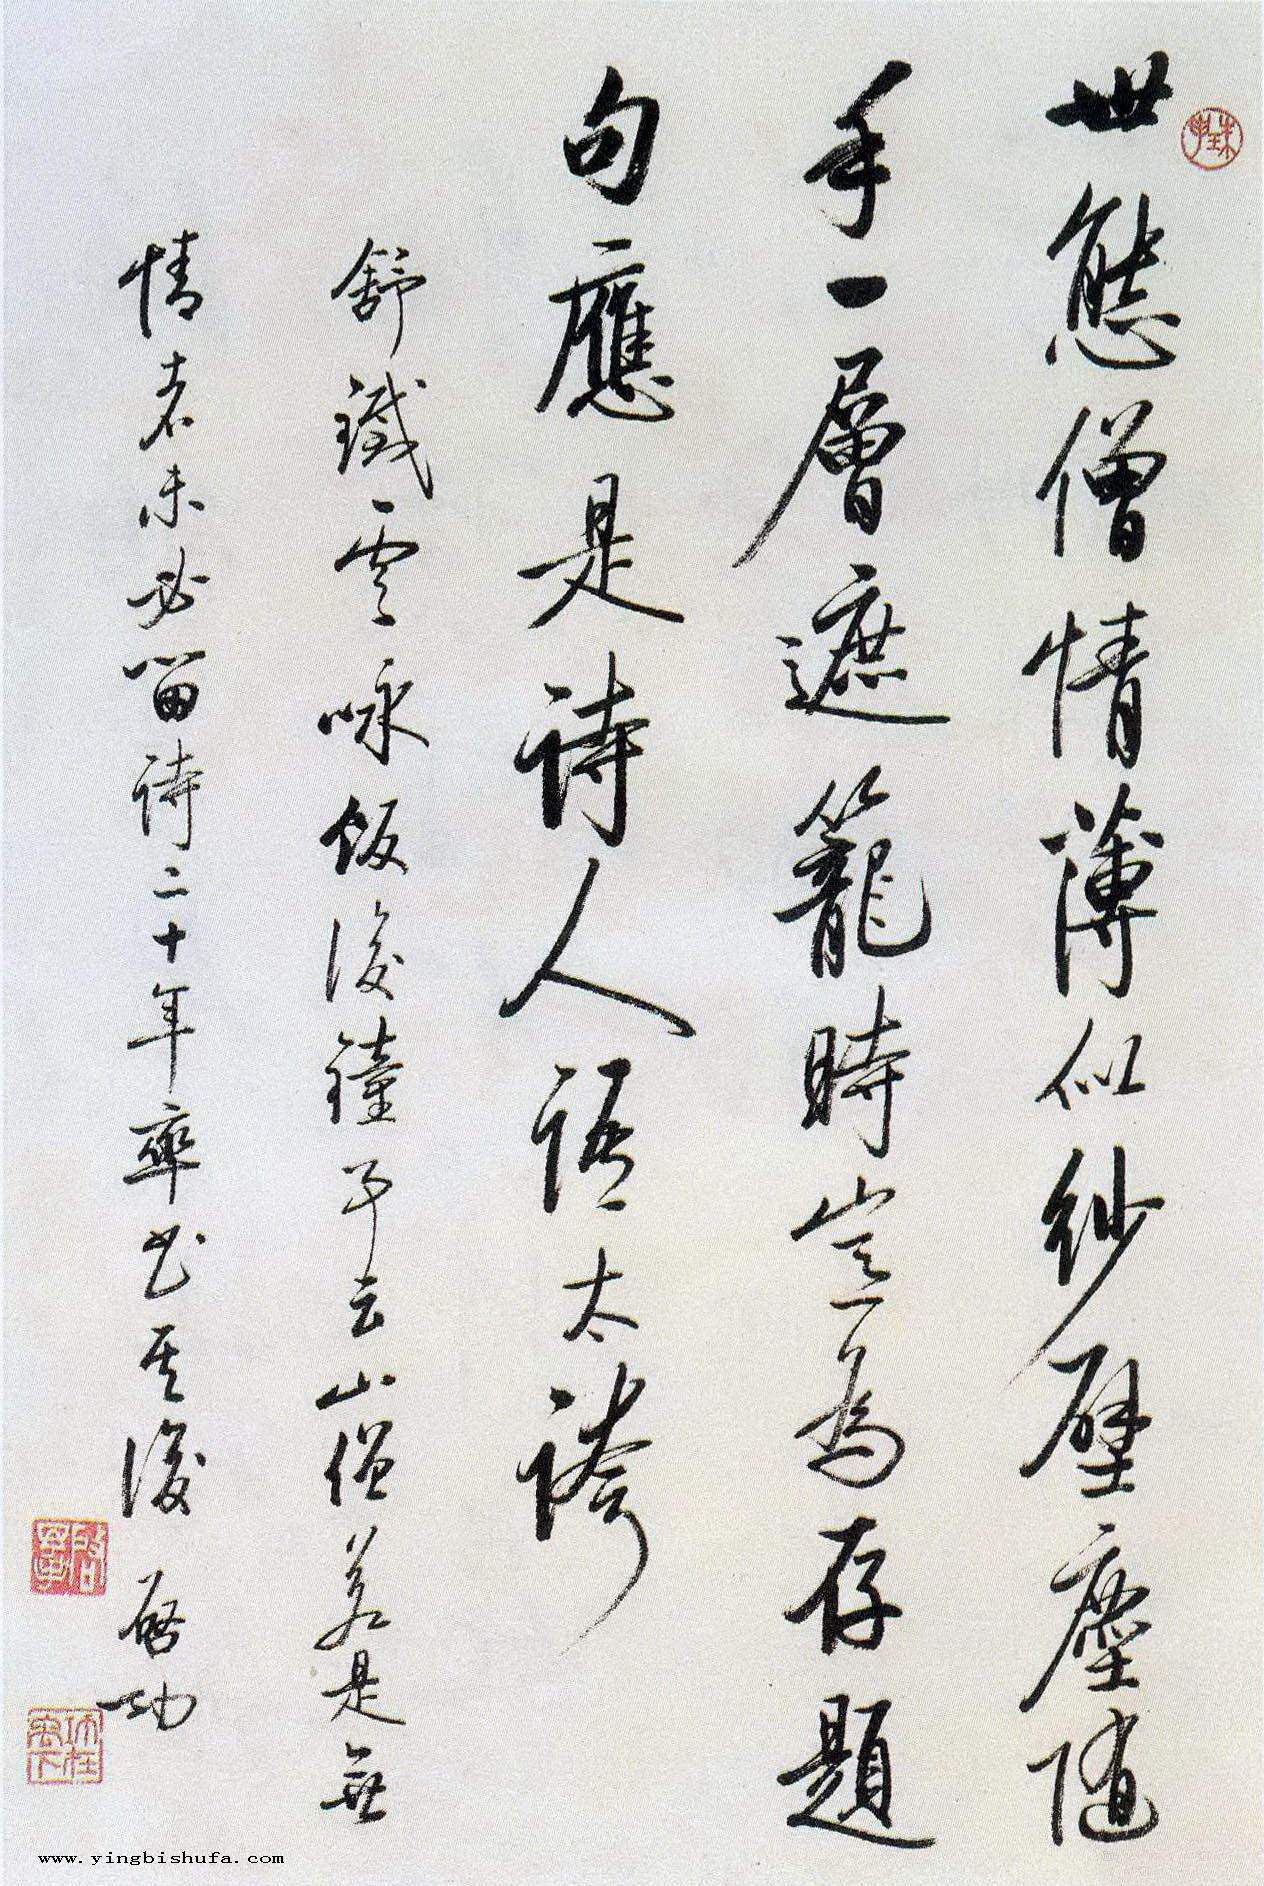 世態僧情薄似紗壁塵随
手一層遮籠時豈為存題
句應是詩人語太誇
舒鐵雲咏飯後鐘予云山僧若是無
情者未必留詩二十年率書其後
啟功
www.yingbishufa.com